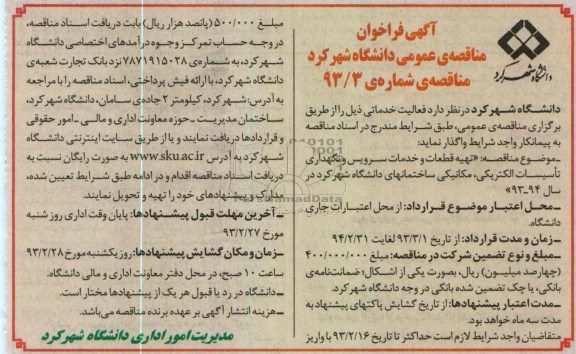 آگهی فراخوان
مناقصه‌ی عمومی دانشگاه شهرکرد
مناقصه‌ی شماره‌ی ۹۳/۳
دانشگاه شهرکرد
دانشگاه شهرکرد درنظر دارد فعالیت خدماتی ذیل را از طریق
برگزاری مناقصه‌ی عمومی، طبق شرایط مندرج در اسناد مناقصه
به پیمانکار واجد شرایط واگذار نماید:
ـ موضوع مناقصه: «تهیه قطعات و خدمات سرویس ونگهداری
تأسیسات الکتریکی، مکانیکی ساختمانهای دانشگاه شهرکرد در
سال ۹۴-۹۳»
ـ محل اعتبار موضوع قرارداد: از محل اعتبارات جاری
دانشگاه.
ـ زمان و مدت قرارداد: از تاریخ ۹۳/۳/۱ لغایت ۹۴/۲/۳۱
ـ مبلغ و نوع تضمین شرکت در مناقصه: مبلغ ۴۰۰/۰۰۰/۰۰۰
(چهارصد میلیون) ریال، بصورت یکی از اشکال: ضمانت‌نامه‌ی
بانکی، یا چک تضمین شده بانکی در وجه دانشگاه شهرکرد.
ـ مدت اعتبار پیشنهادها: از تاریخ گشایش پاکتهای پیشنهاد به
مدت سه ماه خواهد بود.
متقاضیان واجد شرایط لازم است حداکثر تا تاریخ ۹۳/۲/۱۶ با واریز
مبلغ ۵۰۰/۰۰۰ (پانصد هزار ریال) بابت دریافت اسناد مناقصه،
در وجه حساب تمرکز وجوه درآمدهای اختصاصی دانشگاه
شهرکرد، به شماره‌ی ۷۸۷۱۹۱۵۰۲۸ نزد بانک تجارت شعبه‌ی
دانشگاه شهرکرد، با ارائه فیش پرداختی، اسناد مناقصه را با مراجعه
به آدرس: شهرکرد، کیلومتر ۲ جاده‌ی سامان، دانشگاه شهرکرد،
ساختمان مدیریت ـ حوزه معاونت اداری و مالی ـ امور حقوقی
و قراردادها دریافت نمایند و یا از طریق سایت اینترنتی دانشگاه
شهرکرد به آدرس www.sku.ac.ir به صورت رایگان نسبت به
دریافت اسناد مناقصه اقدام و در ادامه طبق شرایط تعیین شده،
مدارک و پیشنهادهای خود را تهیه و تحویل نمایند.
ـ آخرین مهلت قبول پیشنهادها: پایان وقت اداری روز شنبه
مورخ ۹۳/۲/۲۷
ـ زمان ومکان گشایش پیشنهادها: روز یکشنبه مورخ ۹۳/۲/۲۸
ساعت ۱۰ صبح، در محل دفتر معاونت اداری و مالی دانشگاه.
ـ دانشگاه در رد یا قبول هر یک از پیشنهادها مختار است.
ـ هزینه انتشار آگهی بر عهده برنده مناقصه می‌باشد.
مدیریت امور اداری دانشگاه شهرکرد